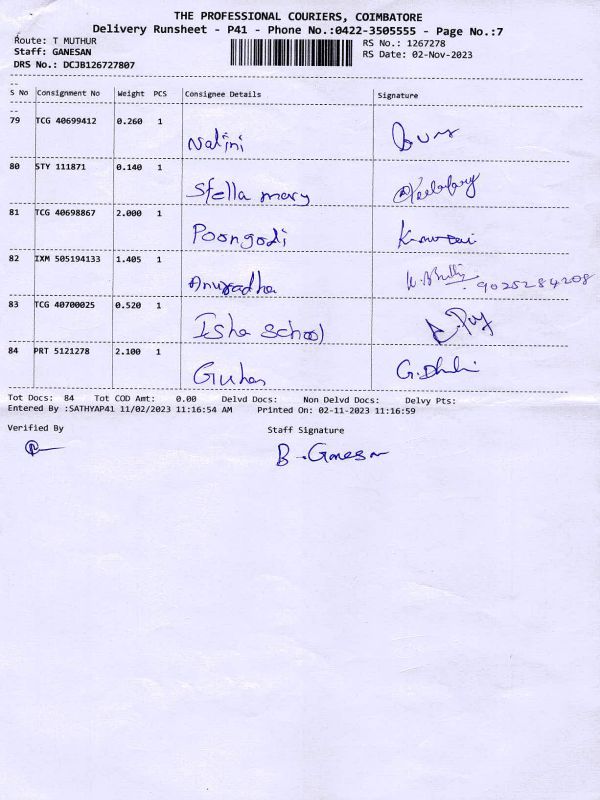 THE PROFESSIONAL COURIERS, COIMBATORE
Delivery Runsheet - P41 - Phone No.:0422-3505555 - Page No.:7
Route: T MUTHUR RS No.: 1267278
Staff: GANESAN RS Date: 02-Nov-2023
DRS No.: DCJB126727807
S No Consignment No Weight PCS Consignee Details Signature
79 TCG 40699412 0.260 1 Nalini
80 STY 111871 0.140 1 Stella mary
81 TCG 40698867 2.000 1 Poongodi
82 IXM 505194133 1.405 1 Anuradha 9025284208
83 TCG 40700025 0.520 1 Isha school
84 PRT 5121278 2.100 1 Guhan
Tot Docs: 84 Tot COD Amt: 0.00 Delvd Docs: Non Delvd Docs: Delvy Pts:
Entered By :SATHYAP41 11/02/2023 11:16:54 AM Printed On: 02-11-2023 11:16:59
Verified By Staff Signature
B. Ganesan